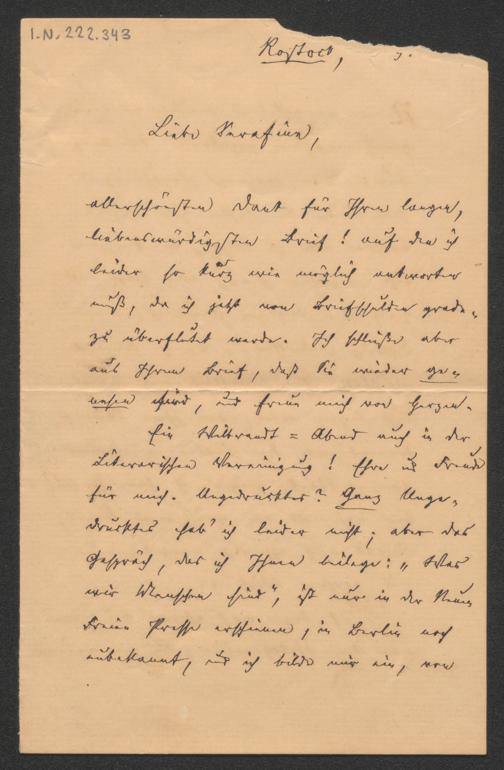 I.N. 222.343
Rostock,
Liebe Serafine,
allerschönsten Dank für Ihren langen,
liebenswürdigsten Brief! auf den ich
leider so kurz wie möglich antworten
muß, da ich jetzt von Briefschulden grade-
zu überflutet werde. Ich schließe aber
aus Ihrem Brief, daß Sie wieder ge-
nesen sind, und freue mich von Herzen.
Ein Wilbrandt = Abend auch in der
Literarischen Vereinigung! Ehre und Freude
für mich. Ungedrucktes? Ganz Unge-
drucktes hab' ich leider nicht; aber das
Gespräch, das ich Ihnen beilege: "Was
wir Menschen sind", ist nur in der Neuen
Freien Presse erschienen, in Berlin noch
unbekannt, und ich bilde mir ein, von